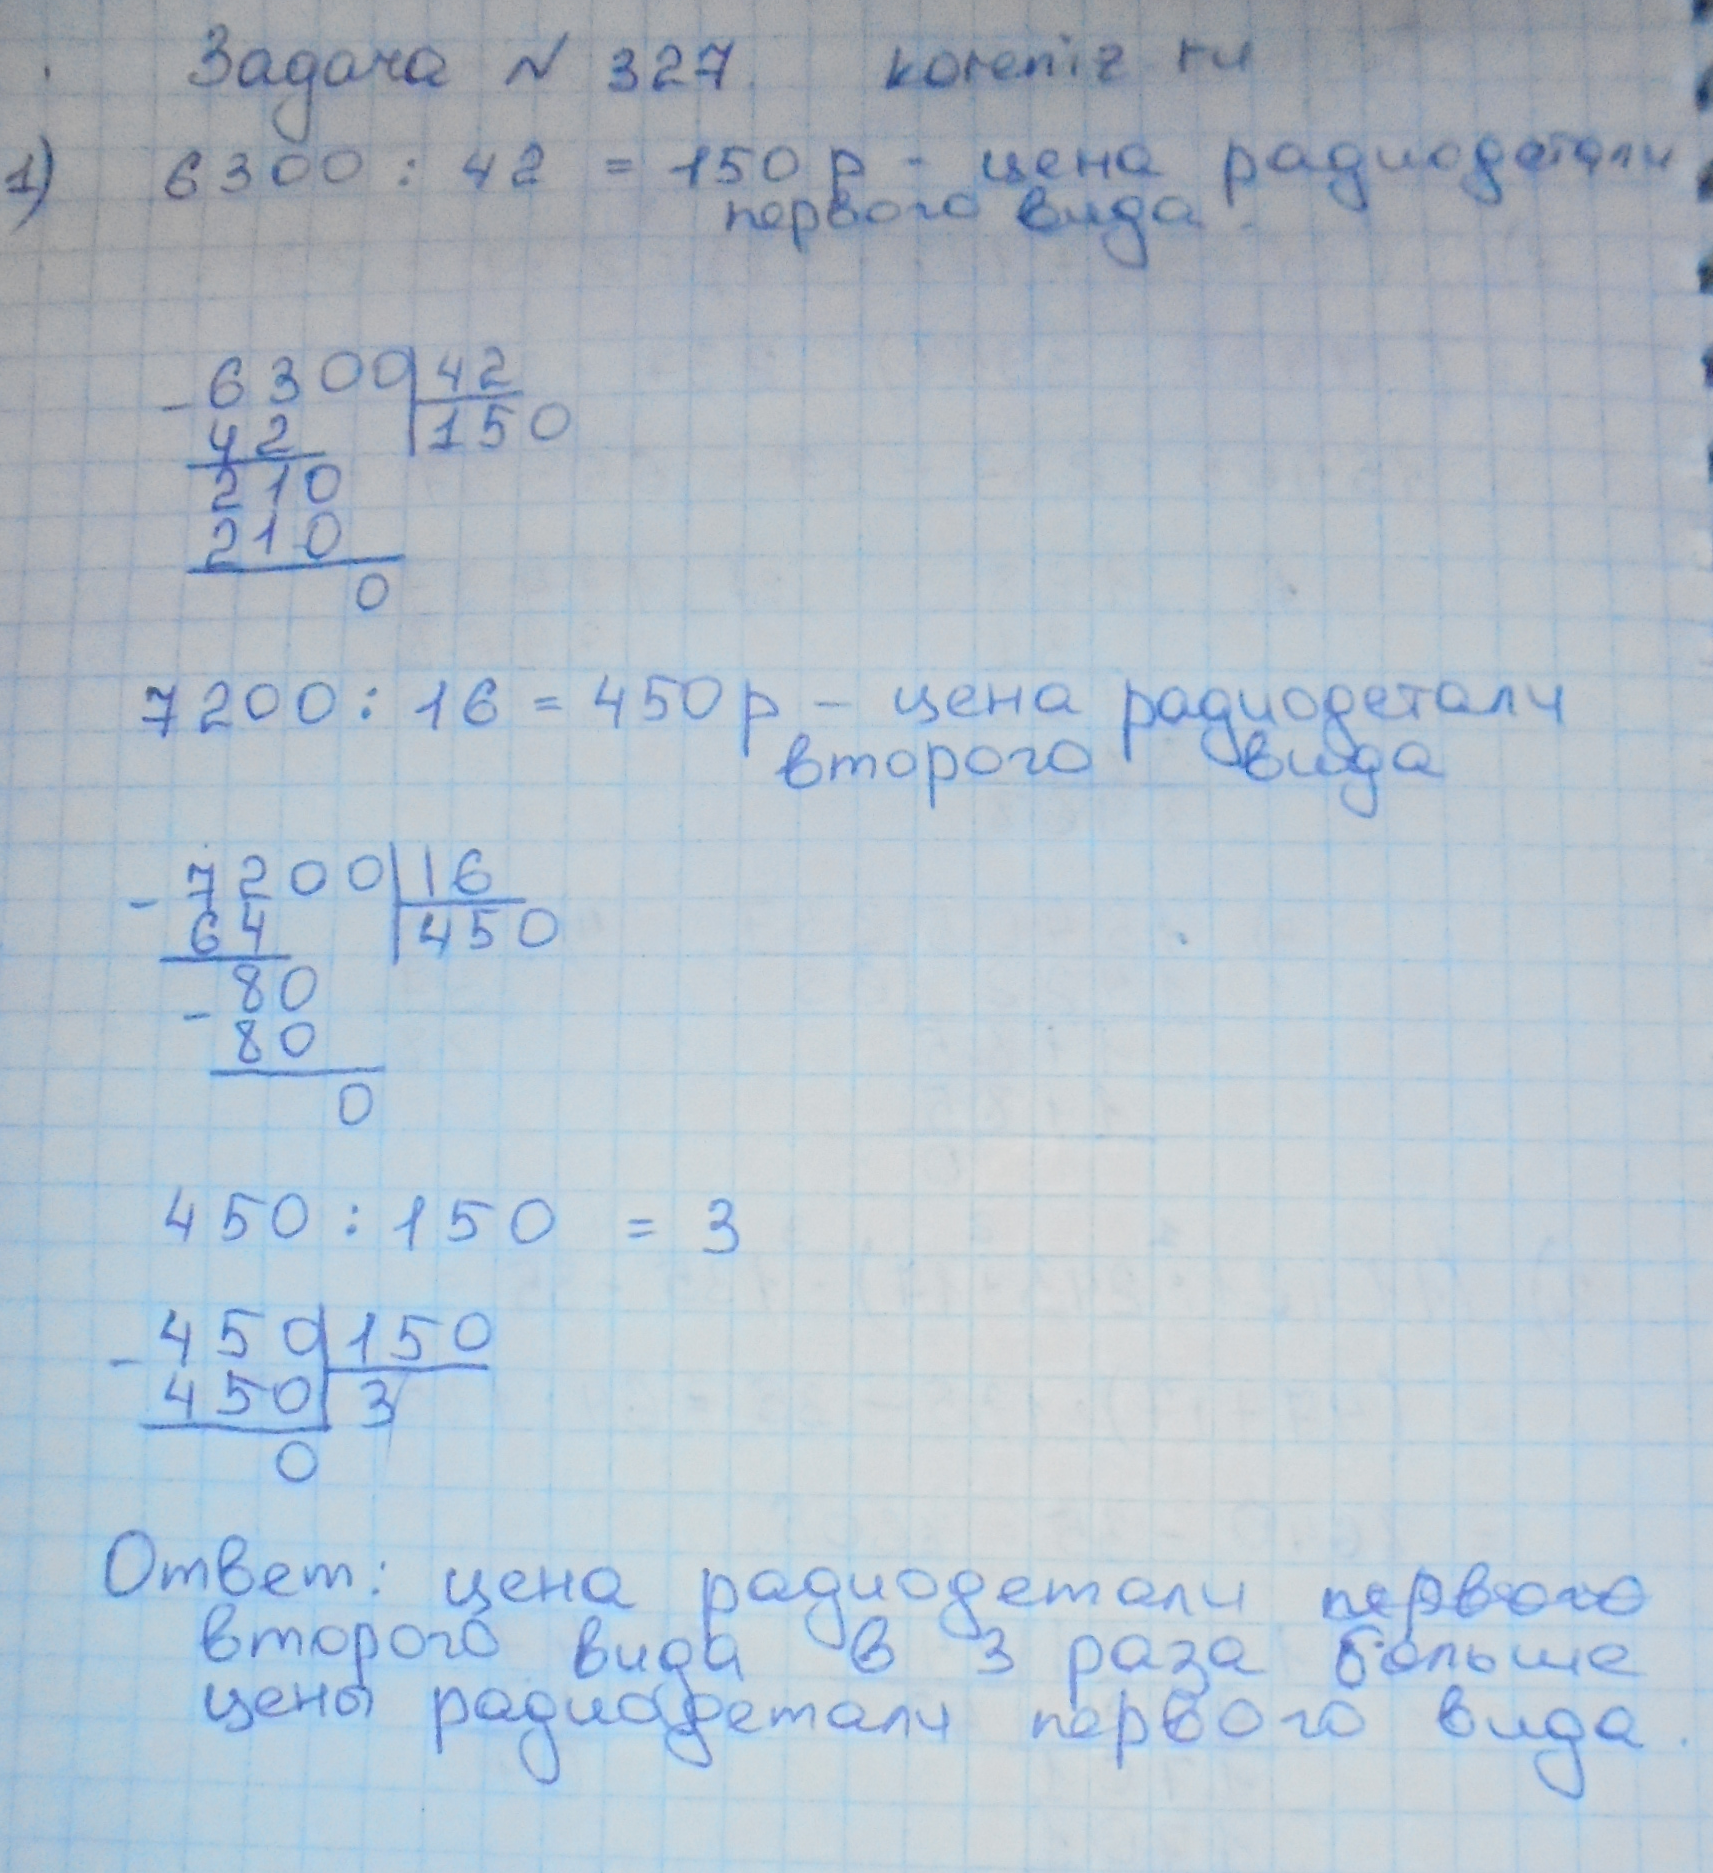 Задача № 327. koreniz ru
1) 6300 : 42 = 150 р - цена радиодетали
первого вида.
- 6300 42
42 150
210
210
0
7200 : 16 = 450 р - цена радиодетали
второго вида
- 7200 16
64 450
- 80
80
0
450 : 150 = 3
- 450 150
450 3
0
Ответ: цена радиодетали первого
второго вида в 3 раза больше
цены радиодетали первого вида.